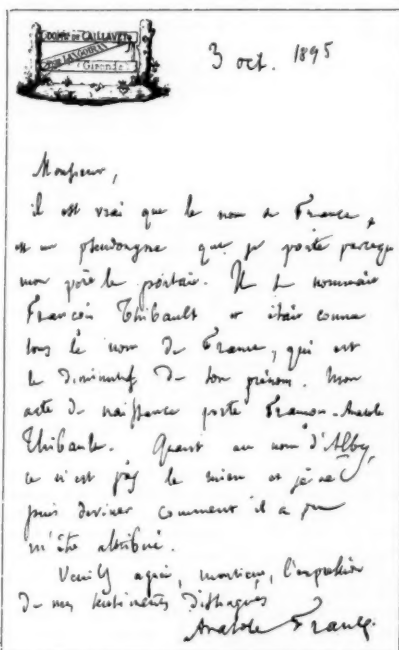 DOMne DE CAILLAVET
(Gironde)
3 oct. 1895
Monsieur,
il est vrai que le nom de France,
est un pseudonyme que je porte parceque
mon père le portait. Il se nommait
François Thibault et était connu
sous le nom de France, qui est
le diminutif de son prénom. Mon
acte de naissance porte François-Anatole
Thibault. Quant au nom d'Alby,
ce n'est pas le mien et je ne
puis deviner comment il a pu
m'être attribué.
Veuillez agréer, monsieur, l'expression
de mes sentiments distingués
Anatole France.